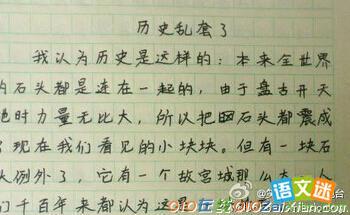 历史乱套了
我认为历史是这样的：本来全世界
的石头都是连在一起的，由于盘古开天
地时力量无比大，所以把石头都震成
了现在我们看见的小块块。但有一块石
头例外了，它有一个故宫城那么大，人
们千百年来都认为这是
语文迷